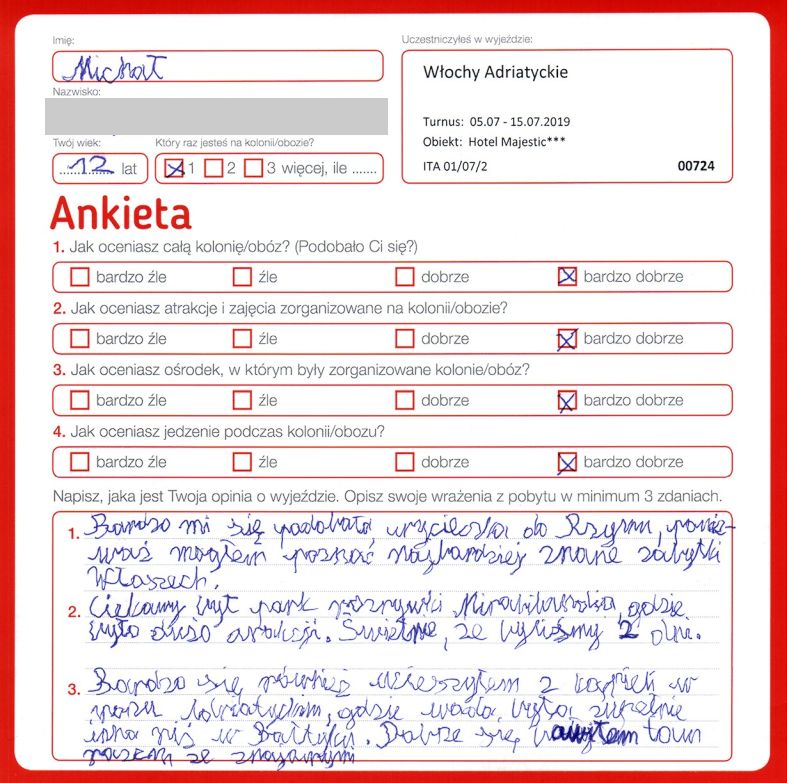 Imię:
Michał
Nazwisko:
Twój wiek:
12 lat
Który raz jesteś na kolonii/obozie?
1 2 3 więcej, ile .......
Uczestniczyłeś w wyjeździe:
Włochy Adriatyckie
Turnus: 05.07 - 15.07.2019
Obiekt: Hotel Majestic***
ITA 01/07/2 00724
Ankieta
1. Jak oceniasz całą kolonię/obóz? (Podobało Ci się?)
bardzo źle źle dobrze bardzo dobrze
2. Jak oceniasz atrakcje i zajęcia zorganizowane na kolonii/obozie?
bardzo źle źle dobrze bardzo dobrze
3. Jak oceniasz ośrodek, w którym były zorganizowane kolonie/obóz?
bardzo źle źle dobrze bardzo dobrze
4. Jak oceniasz jedzenie podczas kolonii/obozu?
bardzo źle źle dobrze bardzo dobrze
Napisz, jaka jest Twoja opinia o wyjeździe. Opisz swoje wrażenia z pobytu w minimum 3 zdaniach.
1. Bardzo mi się podobała wycieczka do Rzymu, poniε-
waż mogłem poznać najbardziej znane zabytki
Włoszech.
2. Ciekawy był park rozrywki gdzie
było dużo atrakcji. Świetnie, że byliśmy 2 dni.
3. Bardzo się również cieszyłem z kąpieli w
morzu gdzie woda była zupełnie
inna niż w Bałtyku. Dobrze się bawiłem
razem ze znajomymi